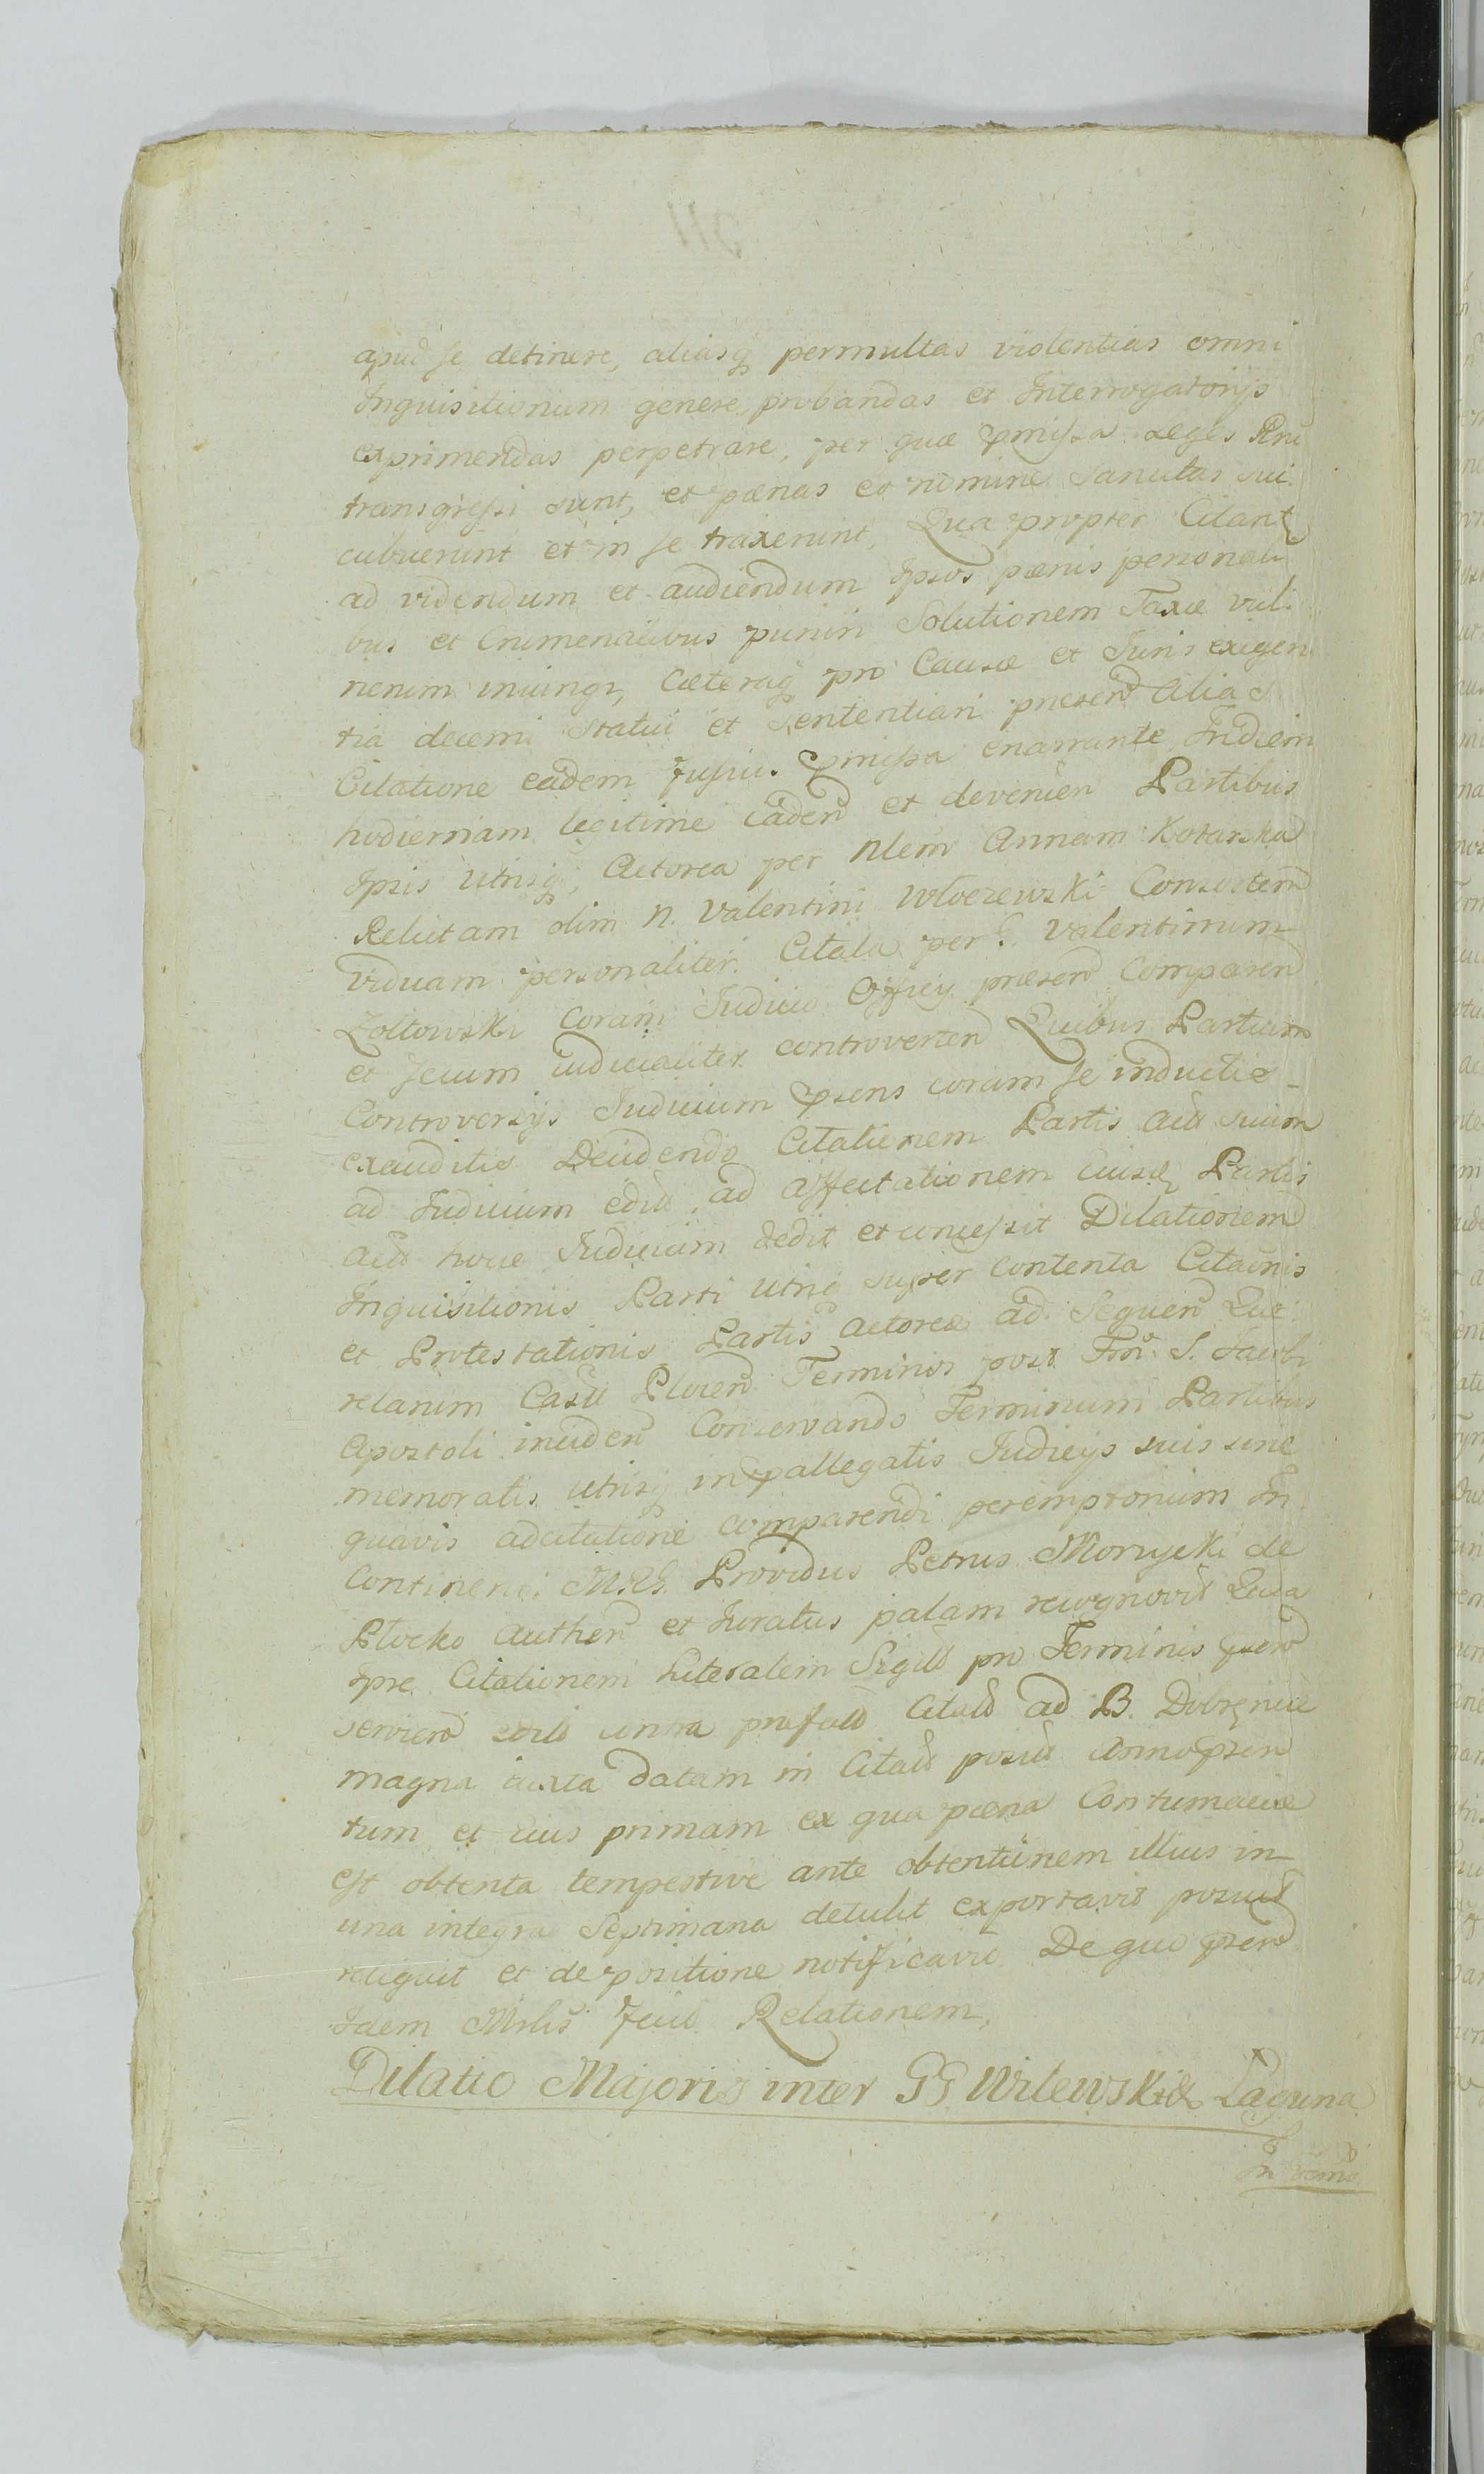 apud se detinere, aliasq permultas violentias omni
Inquisitionum genere probandas et Interrogatorijs
exprimendas perpetrare, per quæ pmissa Leges Rni
transgressi sunt, et pænas eo nomine sancitas sui.
cubuerunt et in se traxerunt, Qua propter Citant
ad videndum et audiendum Ipsos pænis personali
bus et Crimenalibus puniri Solutionem Taxæ vul.
nerum iniungi, Cæteraq pro Causæ et Juris exigen
tia decerni statui et Sententiari presend Alias
Citatione eadem fusius pmissa enarrante Indiem
hodiernam legitime caden et devenien Partibus
Ipsis utrisq, Actorea per Nlem Annam Kotarska
Relictam olim N. Valentini Wloczewski Consortem
viduam personaliter. Citata per G. Valentinum
Zoltowski Coram Judicio Officij præsend Comparend
et secum iudicialiter controverten Quibus Partium
Controversijs Judicium psens coram se inductis
exauditis Decidendo Citationem Partis Act suum
ad Judicium edit, ad affectationem eiusd Partis
Act hocce Judicium dedit et concessit Dilationem
Inquisitionis Parti utriq super contenta Citaonis
et Protestationis Partis Actoreæ ad Sequen Que
relarum Cast Plocen Terminos post Fm S. Jacobi
Apostoli inciden Conservando Terminum Partibus
memoratis utrisq in pallegatis Judicijs suis sine
quavis adcitatione comparendi peremptorium In
Continenti M.RG. Providus Petrus Morzycki de
Plocko Authen et Juratus palam recognovit Quia
Ipse Citationem Literalem Sigill pro Terminis psen
servien contra prafatt Citatt ad B. Dobrznice
magna iuxta datam in Citatt posit Anno psen
tum et eius primam ex qua pæna Contumaciæ
est obtenta tempestive ante obtentionem illius in
una integra Septimana detulit exportavit posuit
reliquit et de positione notificavit De quo psen
Idem Mnlis fecit Relationem,
Dilatio Majoris inter GG Wilewski & Laguna
In